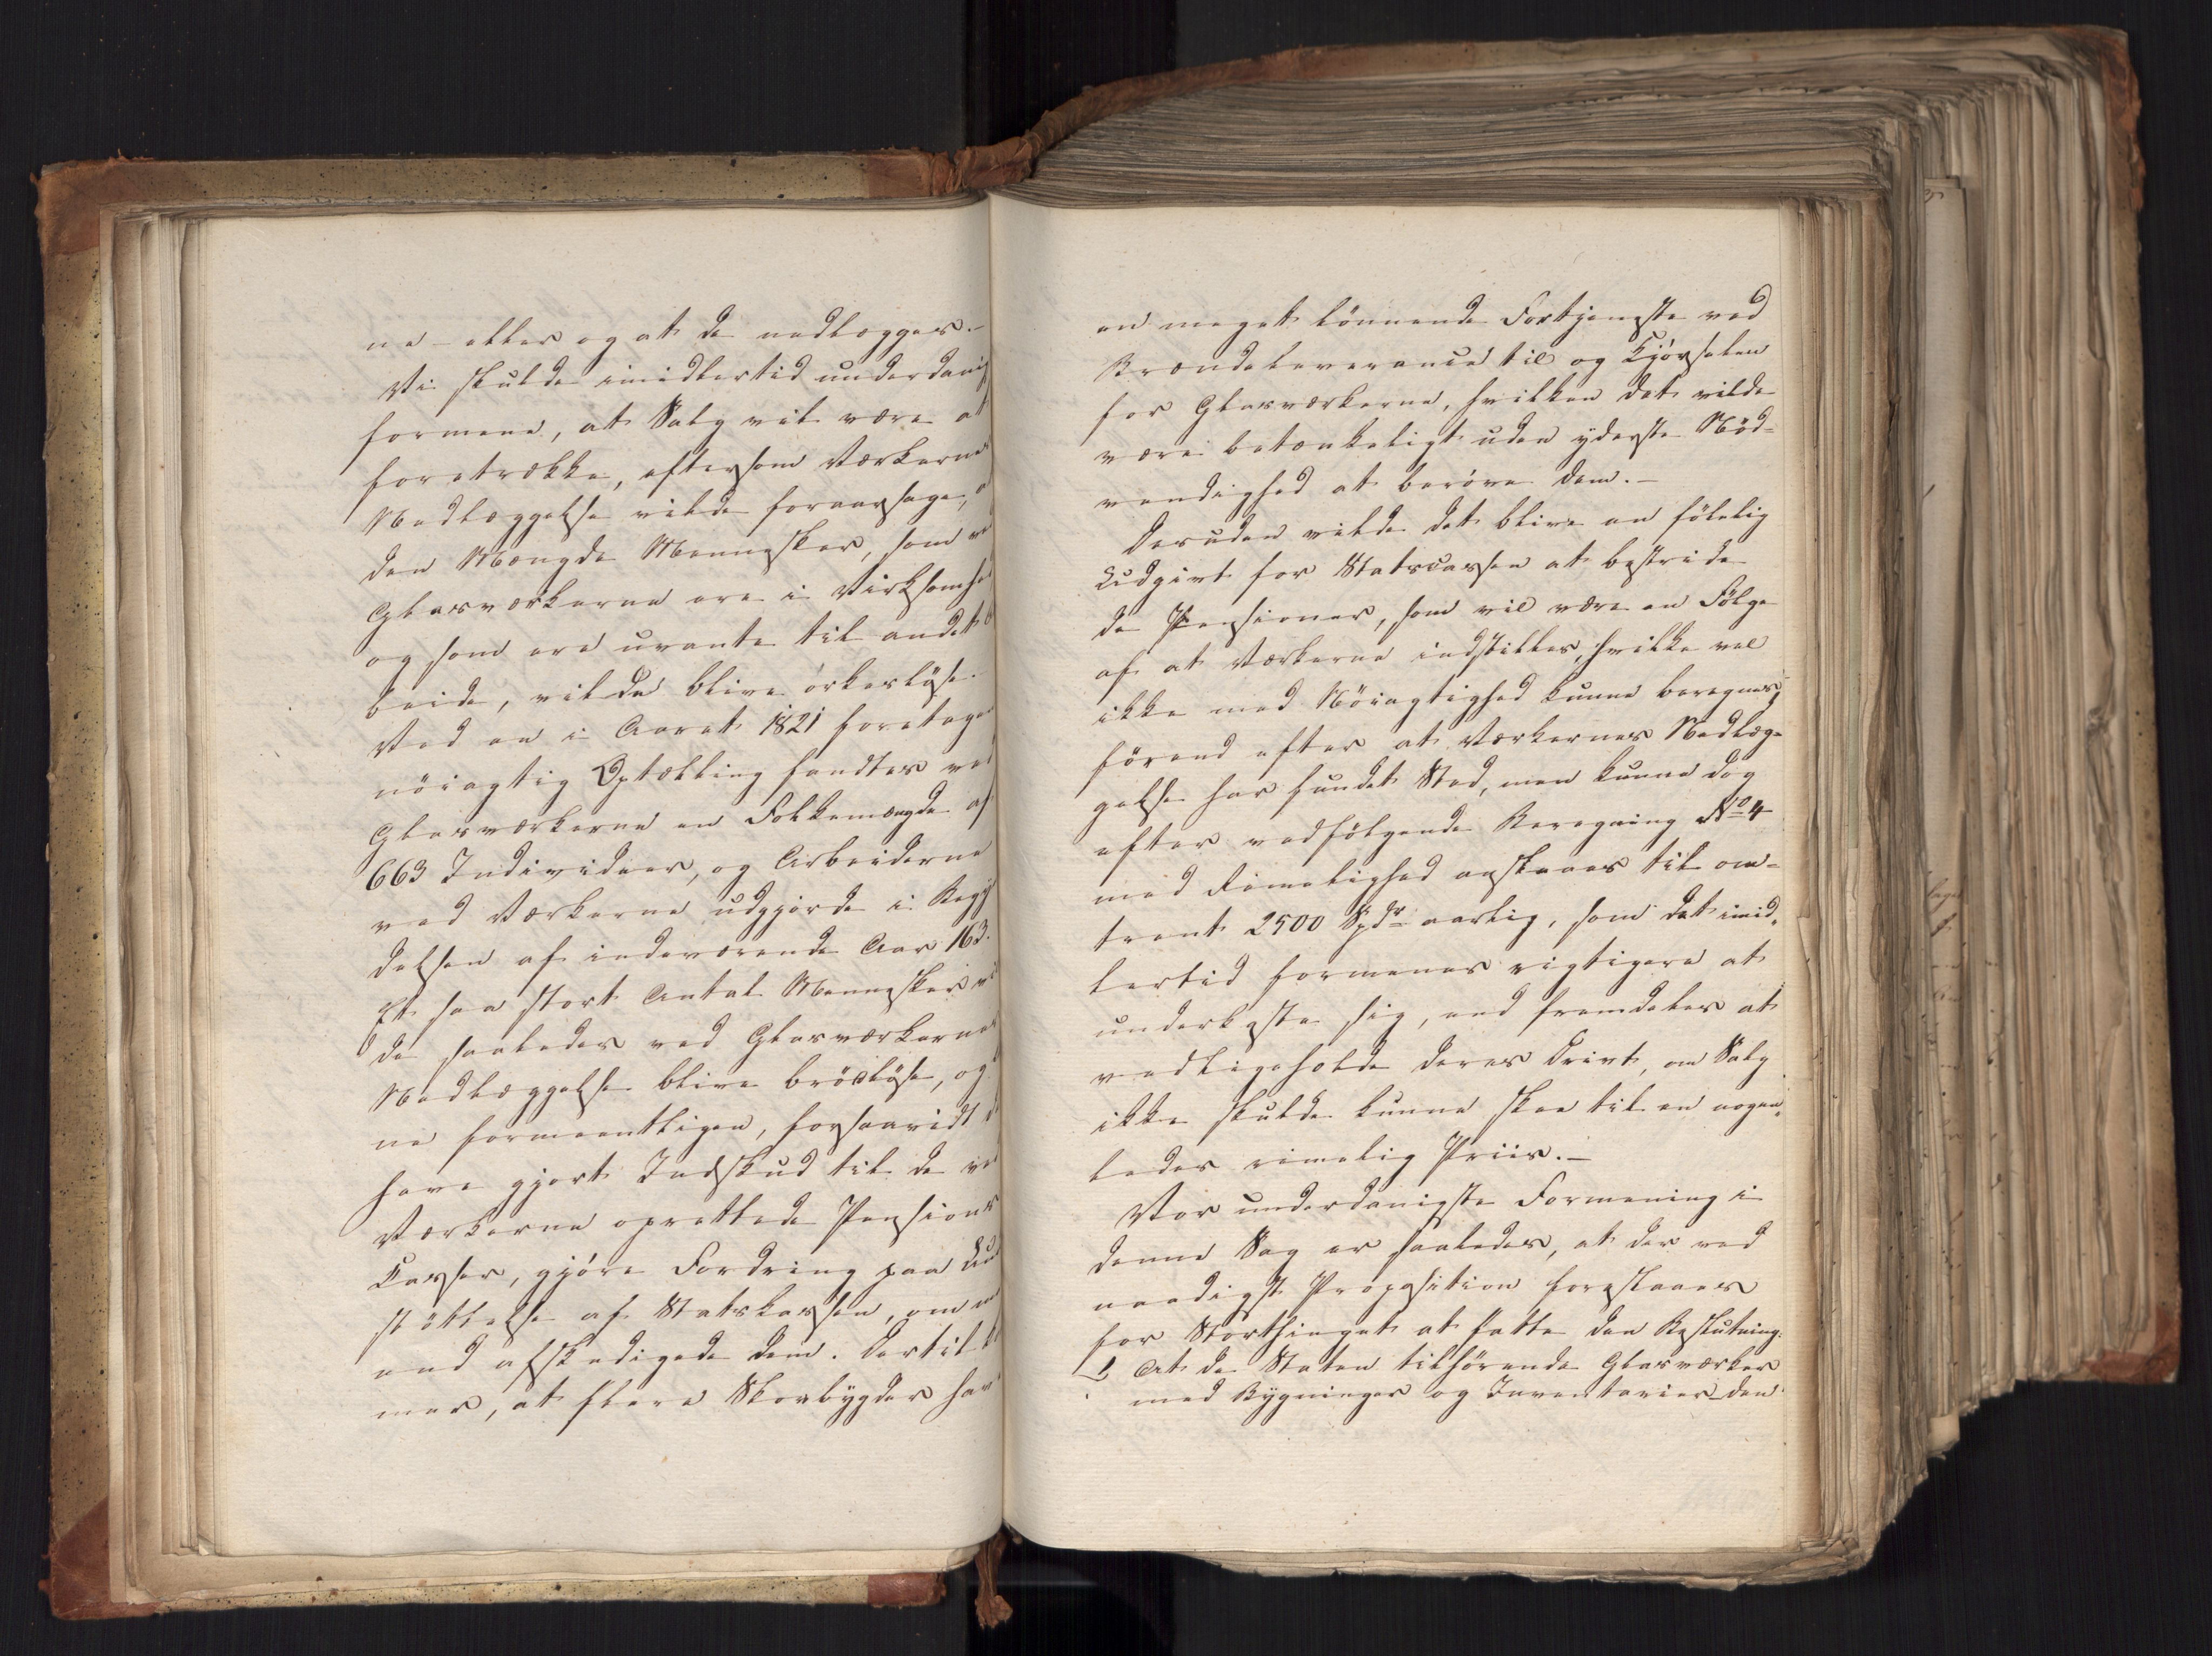 ne – eller og at de nedlægges. –
Vi skulde imidlertid underdanigst
formene, at Salg vil være at
foretrække, eftersom Værkernes
Nedlæggelse vilde foraarsage, at
den Mængde Mennesker, som ved
Glasværkerne ere i Virksomhed
og som ere uvante til andet
beide, vilde blive ørkesløse.
Ved en i Aaret 1821 foretagen
nöiagtig Optælling fandtes ved
Glasværkerne en Folkemængde af
663 Individer, og Arbeiderne
ved Værkerne udgjorde i Begyn
delsen af indeværende Aar 163.
Et saa stort Antal Mennesker vil
de saaledes ved Glasværkernes
Nedlæggelse blive brödløse, og
ne formeentligen, forsaavidt de
have gjort Indskud til de ved
Værkerne oprettede Pensions
Casser, gjøre Fordring paa Un
støttelse af Statskassen, om man
end afskedigede dem. Dertil kom
mer, at flere Skovbygder have
en meget lönnende Fortjeneste ved
Brændeleverance til og Kjørselen
for Glasværkerne, hvilken det vilde
være betænkeligt uden yderste Nød-
vendighed at berøve dem. –
Desuden vilde det blive en følelig
Udgivt for Statscassen at bestride
de Pensioner, som vil være en Følge
af at Værkerne indstilles, hvilke vel
ikke med Nöiagtighed kunne beregnes,
förend efter at Værkernes Nedlæg-
gelse har fundet Sted, men kunne dog
efter vedfølgende Beregning No 4
med Rimelighed anslaaes til om-
trent 2500 Spdr aarlig, som det imid-
lertid formenes rigtigere at
underkaste sig, end fremdeles at
vedligeholde deres Drivt, om Salg
ikke skulde kunne skee til en nogen-
ledes rimelig Priis. –
Vor underdanigste Formening i
denne Sag er saaledes, at der ved
naadigst Proposition foreslaaes
for Storthinget at fatte den Beslutning:
1, At de Staten tilhørende Glasværker
med Bygninger og Inventarier den